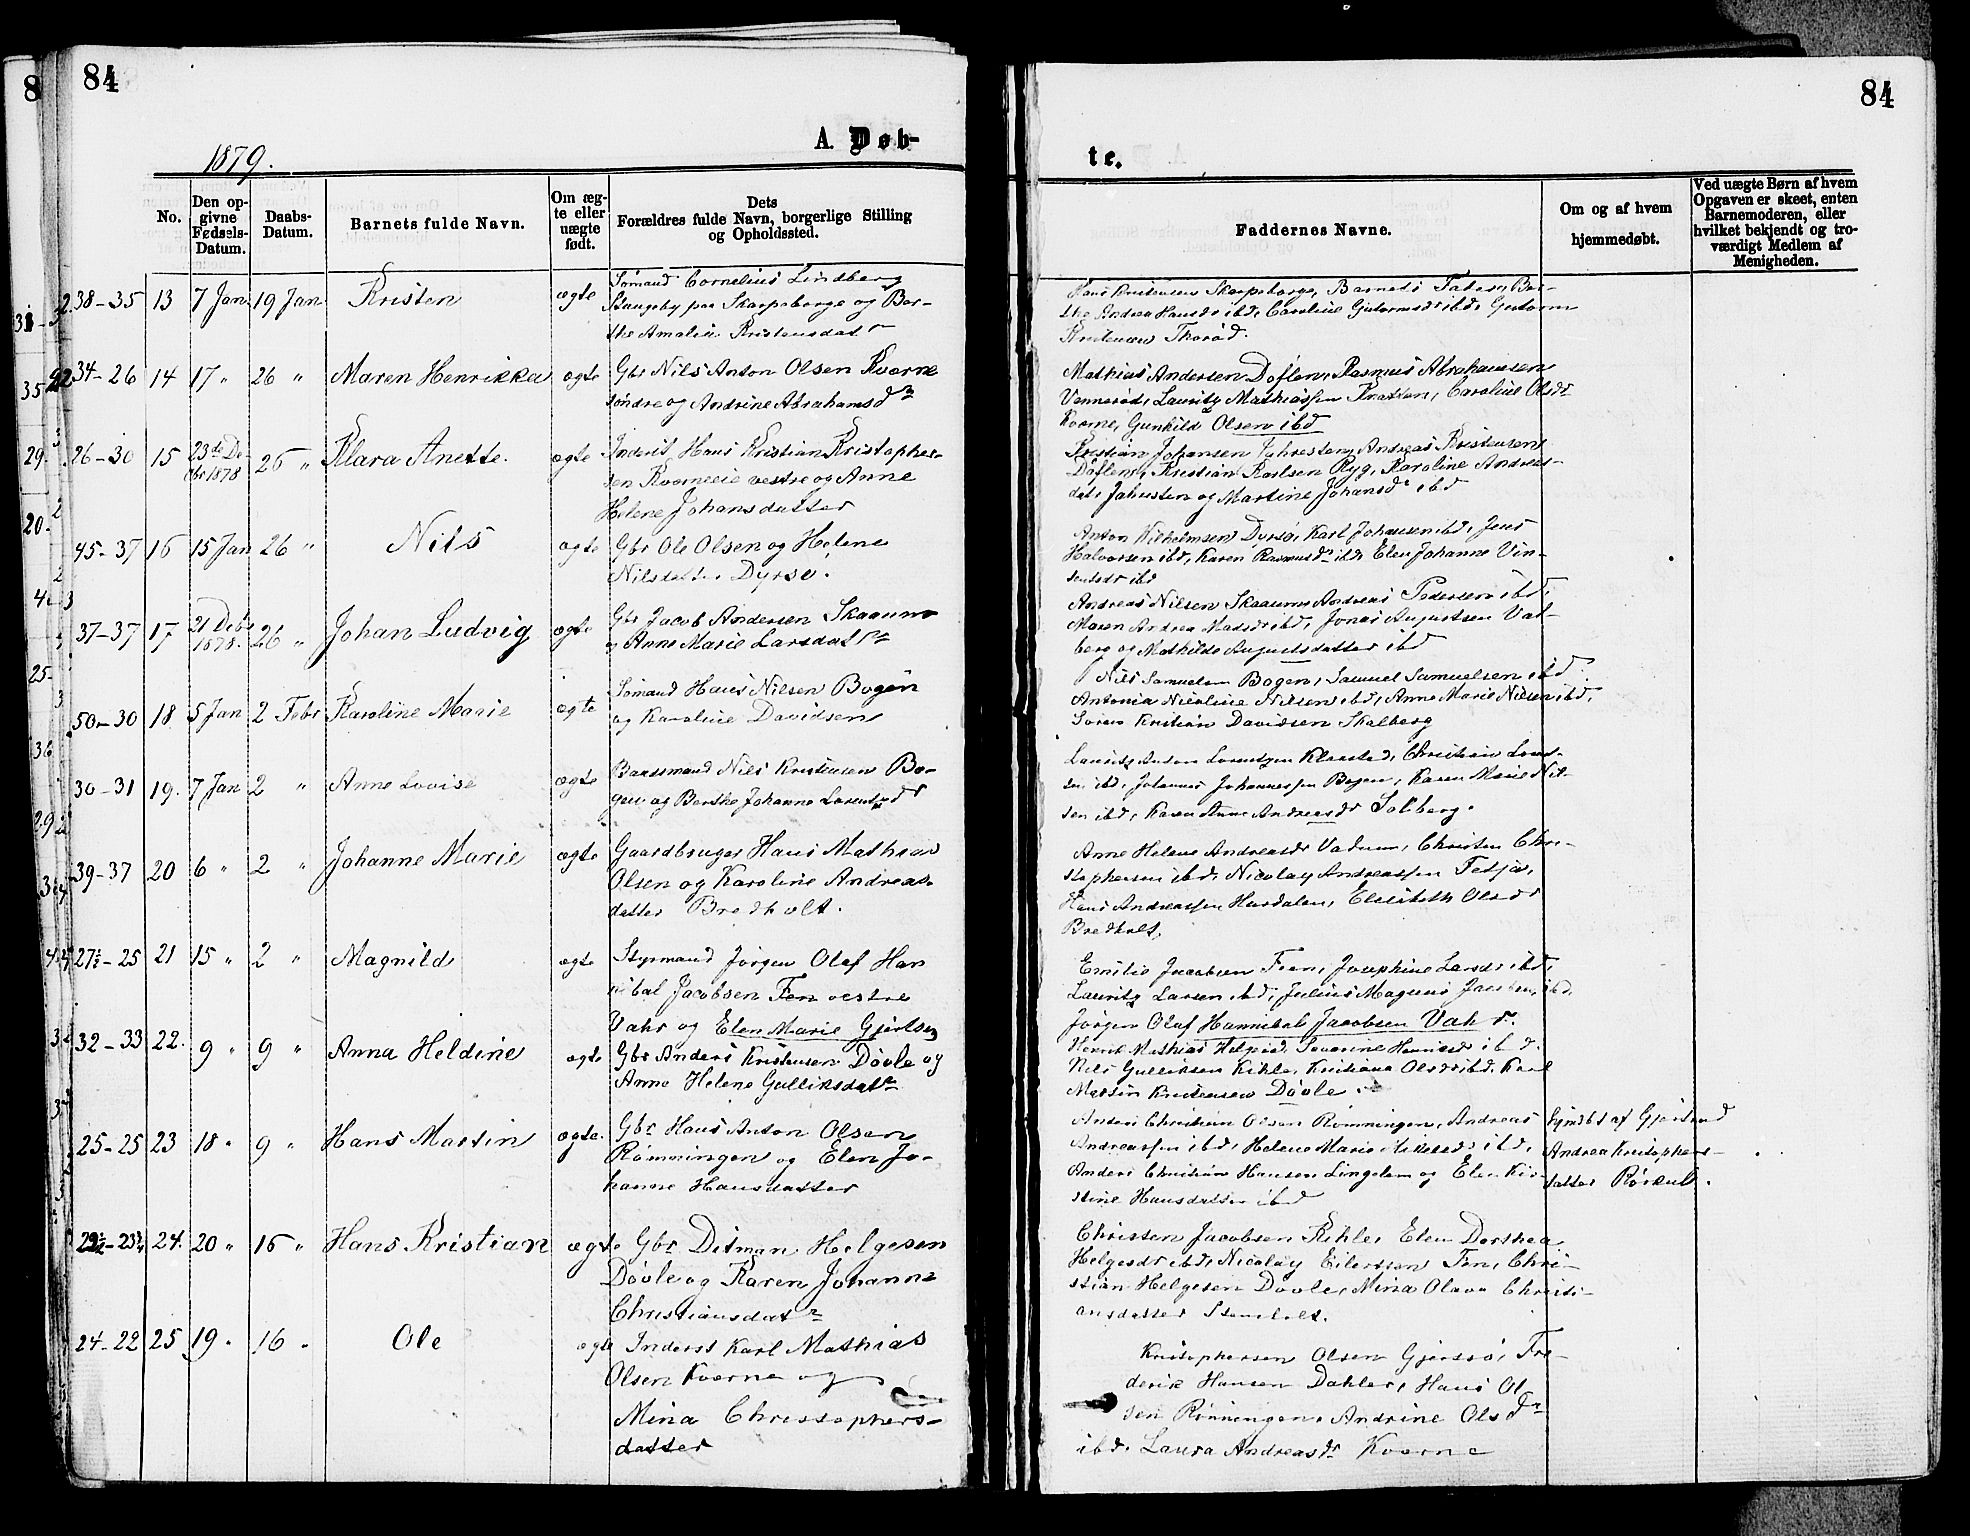 84
84
1879.
A. Døb-
te.
No.
Den op-
givne
Fødsels-
Datum.
Daabs-
Datum.
Barnets fulde Navn.
Om æg-
te eller
uægte
født.
Dets
Forældres fulde Navn, borgerlige Stilling
og Opholdssted.
Faddernes Navne.
Om og af hvem
hjemmedøbt.
Ved uægte Børn af hvem
Opgaven er skeet, enten
Barnemoderen, eller
hvilket bekjendt og tro-
værdigt Medlem af
Menigheden.
38-35 13 7 Jan 19 Jan Kristen ægte
Sømand Cornelius Lindberg
Stangeby paa Skarpeborge og Ber-
the Amalie Kristensdatr
Hans Kristensen Skarpeborge, Barnets Fader, Ber-
the Andrea Hansdr ibd, Caroline Guttormsdr ibd, Guttorm
Kristensen Thorød.
34-26 14 17 " 26 " Maren Henrikka ægte
Gbr Nils Anton Olsen Kverne
søndre og Andrine Abrahamsdr
Mathias Andersen Døflen, Rasmus Abrahamsen
Vennerød, Lauritz Mathiassen Kratten, Caroline Olsdr
Kverne, Gunhild Olsen ibd
26-30 15 23de De-
cbr 1878 26 " Klara Anette. ægte
Inderst Hans Kristian Kristopher-
sen Kverneeie vestre og Anne
Helene Johansdatter
Kristian Johansen Jahresten, Andreas Kristensen
Døflen, Kristian Karlsen Ryg, Karoline Andreas-
datr Jahresten og Martine Johansdr ibd
45-37 16 15 Jan 26 " Nils ægte
Gbr Ole Olsen og Helene
Nilsdatter Dyrsø.
Anton Wilhelmsen Dyrsø, Karl Johansen ibd, Jens
Halvorsen ibd, Karen Rasmusdr ibd, Elen Johanne Vin-
sentsdr ibd
37-37 17 21 Debr
1878. 26 " Johan Ludvig ægte
Gbr Jacob Andersen Skaaum
og Anne Marie Larsdatr
Andreas Nilsen Skaaum, Andreas Pedersen ibd,
Maren Andrea Madsdr ibd, Jonas Augustsen Vat-
berg og Mathilde Augustsdatter ibd
50-30 18 5 Jan 2 Febr Karoline Marie ægte
Sømand Hans Nilsen Bogen
og Karoline Davidsen
Nils Samuelsen Bogen, Samuel Samuelsen ibd,
Antonia Nicoline Nilsen ibd, Anne Marie Nilsen ibd,
Søren Kristian Davidsen Skalberg
30-31 19. 7 Jan 2 " Anne Lovise ægte
Baadsmand Nils Kristensen Bo-
gen og Berthe Johanne Lorentsdr
Lauritz Anton Lorentzen Klaastad, Christian Lorent-
sen ibd, Johannes Johannessen Bogen, Karen Marie Nil-
sen ibd, Karen Anne Andreasdr Solberg.
39-37 20 6 " 2 " Johanne Marie ægte
Gaardbruger Hans Mathias
Olsen og Karoline Andreas-
datter Bredholt.
Anne Helene Andreasdr Vadum, Christen Chri-
stophersen ibd, Nicolay Andreassen Fetjø,
Hans Andreassen Hasdalen, Elisabeth Olsdr
Bredholt.
27½-25 21 15 " 2 " Magnild ægte
Styrmand Jørgen Olaf Han
nibal Jacobsen Fen vestre
Vahr og Elen Marie Gjertsen
Emilie Jacobsen Feen, Josephine Larsdr ibd,
Lauritz Larsen ibd, Julius Magnus Jacobsen ibd,
Jørgen Olaf Hannibal Jacobsen Vahr.
32-33 22. 9 " 9 " Anna Heldine ægte
Gbr Anders Kristensen Døvle og
Anne Helene Gulliksdatr
Henrik Mathias Helgerød, Severine Henriksdr ibd.
Nils Gulliksen Kihle, Kristiana Olsdr ibd, Karl
Martin Kristensen Døvle.
25-25 23 18 " 9 " Hans Martin ægte.
Gbr Hans Anton Olsen
Rømmingen og Elen Jo-
hanne Hansdatter
Anders Christian Olsen Rømmingen, Andreas
Andreassen ibd, Helene Marie Mikkelsdr ibd,
Anders Christian Hansen Lingelem og Elen Kir-
stine Hansdatter ibd
Hjmdbt af Gjertrud
Andrea Kristophers-
datter Rørkul.
24. 20 " 16 " Hans Kristian ægte
Gbr Ditman Helgesen
Døvle og Karen Johanne
Christiansdatr
Christen Jacobsen Kihle, Elen Dorthea
Helgesdr ibd, Nicolay Eilertsen Fen, Chri-
stian Helgesen Døvle, Mina Olava Christi-
ansdatter Stenholt.
24-22 25 19 " 16 " Ole ægte
Inderst Karl Mathias
Olsen Kverne og
Mina Christophers-
datter
Kristophersen Olsen Gjersø, Fre-
derik Hansen Dahler, Hans Ol-
sen Rønningen, Andrine Olsdr
ibd. Laura Andreasdr Kverne